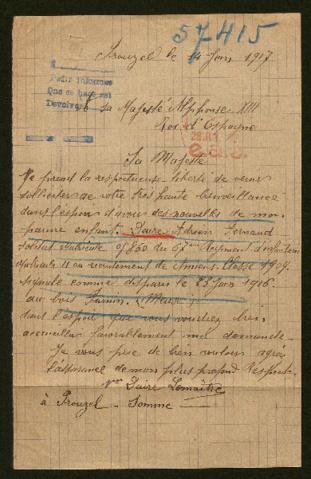 57415
Prouzel le 4 Juin 1917.
Pedir Informes
Que se hace
Devolver
à Sa Majesté Alphonse XIII
Roi d'Espagne
Sa Majesté
Je prend la respectueuse liberté de venir
solliciter de votre très haute bienveillance
dans l'espoir d'avoir des nouvelles de mon
pauvre enfant. Daire Adrien Fernand
soldat matricule 07850 du 67me Regiment d'infanterie
matricule 11 au recrutement de Amiens. Classe 1909.
signalé comme disparu le 23 Juin 1916.
au bois Fumin. (Meuse)
dans l'espoir que vous voudrez bien
accueillir favorablement ma demande.
Je vous prie de bien vouloir agréer
l'assurance de mon plus profond respect.
Daire Lemaître
à Prouzel - Somme -